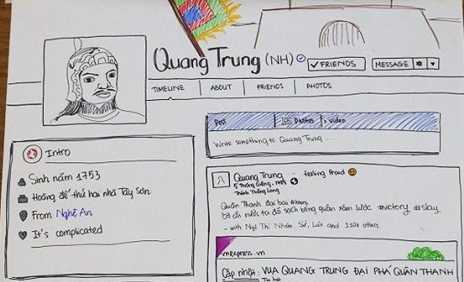 Quang Trung (NH)
✓ FRIENDS MESSAGE
TIMELINE ABOUT FRIENDS PHOTOS
Post Photos Video
Write something to Quang Trung
Intro
Sinh năm 1753
Hoàng đế thứ hai nhà Tây Sơn
From Nghệ An
It's complicated
Quang Trung – feeling proud
Thành Thăng Long
Quân Thanh đại bại
bị ta đá sạch bóng quân xâm lược #victory #slay
– with Ngô Thì Nhậm, Sở, Lân and others
mexpress.vn
Cập nhật: VUA QUANG TRUNG ĐẠI PHÁ QUÂN THANH